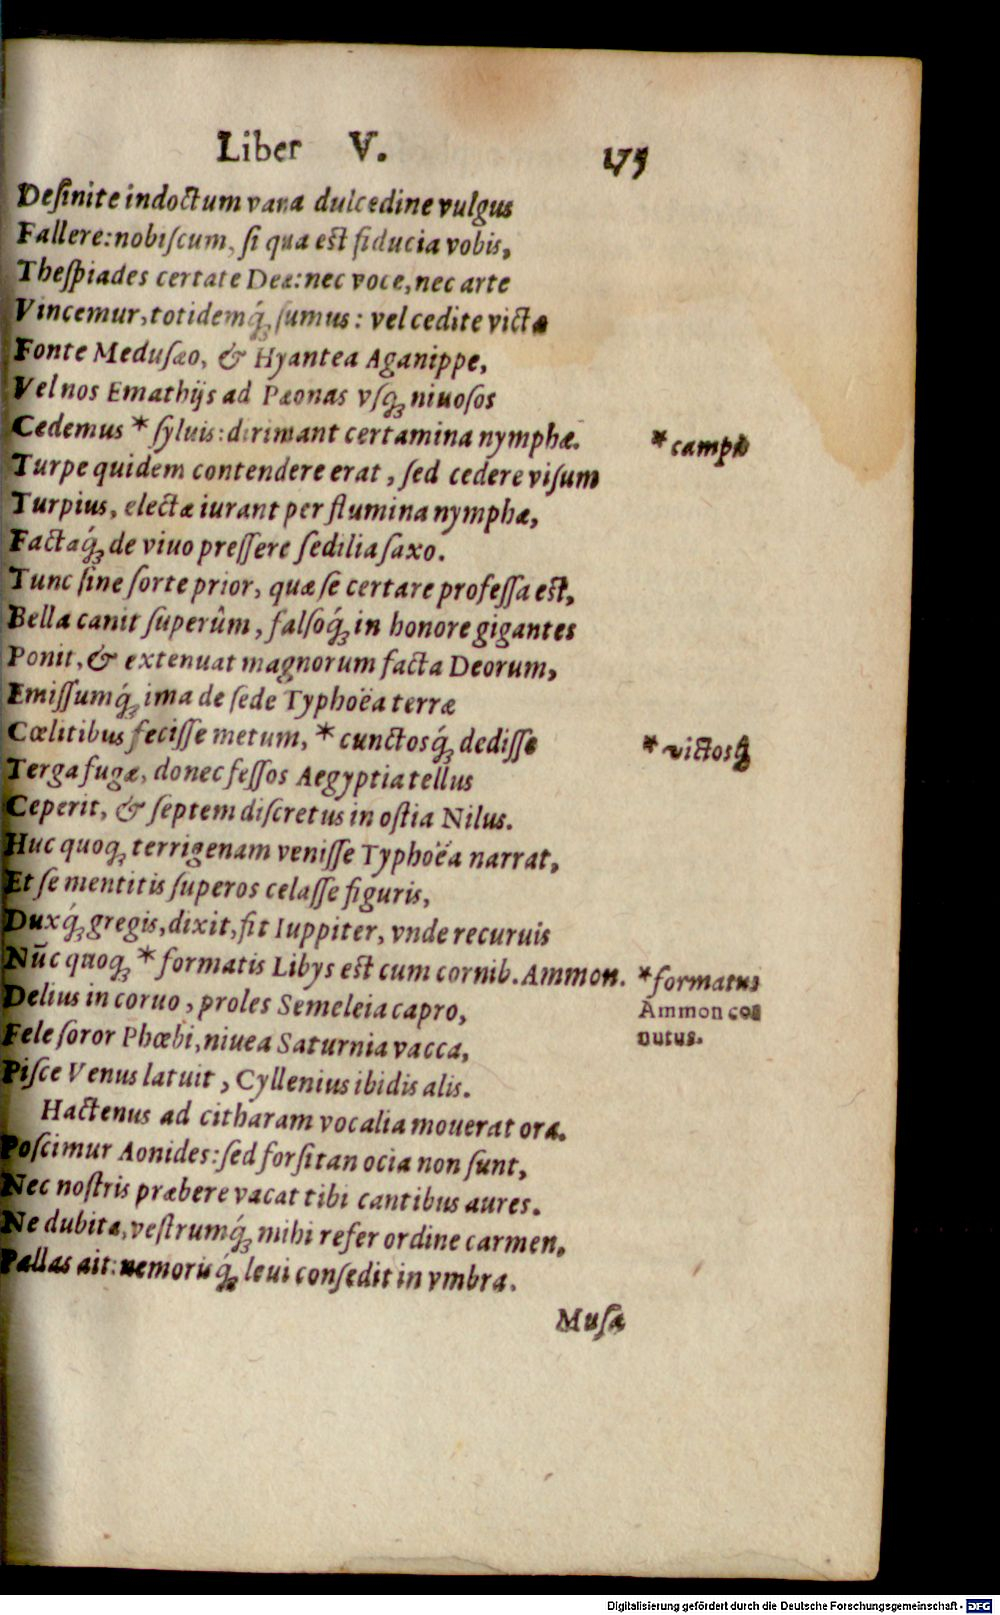 Liber V. 175
Deſinite indoctum vana dulcedine vulgus
Fallere: nobiſcum, ſi qua eſt fiducia vobis,
Theſpiades certate Deæ: nec voce, nec arte
Vincemur, totidemq́ꝫ ſumus: vel cedite victæ
Fonte Meduſæo, & Hyantea Aganippe,
Vel nos Emathijs ad Pæonas vſqꝫ niuoſos
Cedemus * ſyluis: dirimant certamina nymphæ. * campis
Turpe quidem contendere erat, ſed cedere viſum
Turpius, electæ iurant per flumina nymphæ,
Factaq́ꝫ de viuo preſſere ſedilia ſaxo.
Tunc ſine ſorte prior, quæ ſe certare profeſſa eſt,
Bella canit ſuperûm, falſoq́ꝫ in honore gigantes
Ponit, & extenuat magnorum facta Deorum,
Emiſſumq́ꝫ ima de ſede Typhoëa terræ
Cœlitibus feciſſe metum, * cunctosq́ꝫ dediſſe * victosq́ꝫ
Terga fugæ, donec feſſos Aegyptia tellus
Ceperit, & ſeptem diſcretus in oſtia Nilus.
Huc quoqꝫ terrigenam veniſſe Typhoëa narrat,
Et ſe mentitis ſuperos celaſſe figuris,
Duxq́ꝫ gregis, dixit, fit Iuppiter, vnde recuruis
Nūc quoqꝫ * formatis Libys eſt cum cornib. Ammon. * formatus
Ammon cor
nutus.
Delius in coruo, proles Semeleia capro,
Fele ſoror Phœbi, niuea Saturnia vacca,
Piſce Venus latuit, Cyllenius ibidis alis.
Hactenus ad citharam vocalia mouerat ora.
Poſcimur Aonides: ſed forſitan ocia non ſunt,
Nec noſtris præbere vacat tibi cantibus aures.
Ne dubita, veſtrumq́ꝫ mihi refer ordine carmen,
Pallas ait: nemorisq́ꝫ leui conſedit in vmbra.
Muſa
Digitalisierung gefördert durch die Deutsche Forschungsgemeinschaft - DFG